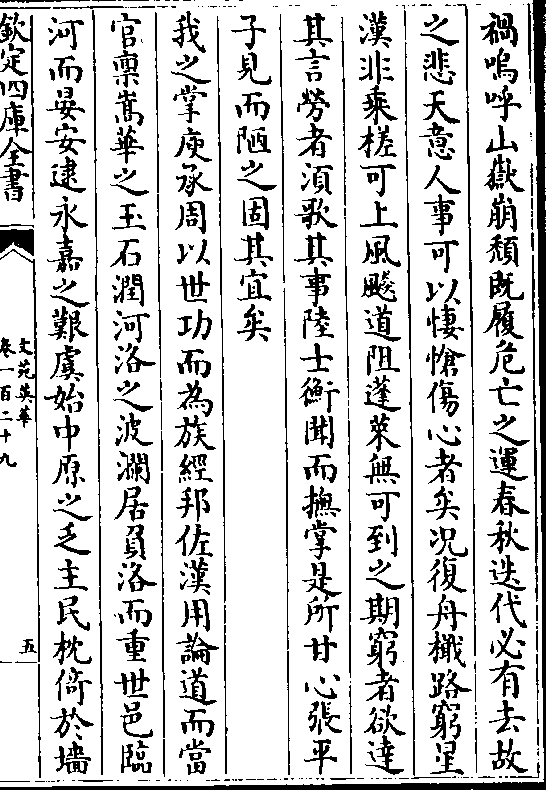 禍嗚呼山嶽崩頽既履危亡之運春秋迭代必有去故
之悲天意人事可以悽愴傷心者矣况復舟檝路窮星
漢非乘槎可上風飈道阻蓬萊無可到之期窮者欲達
其言勞者湏歌其事陸士衡聞而撫掌是所甘心張平
子見而陋之固其宜矣
我之掌庾承周以世功而為族經邦佐漢用論道而當
官禀嵩華之玉石潤河洛之波瀾居負洛而重世邑臨
河而晏安逮永嘉之艱虞始中原之乏主民枕倚於墻
欽定四庫全書
文苑英華
卷一百二十九
五